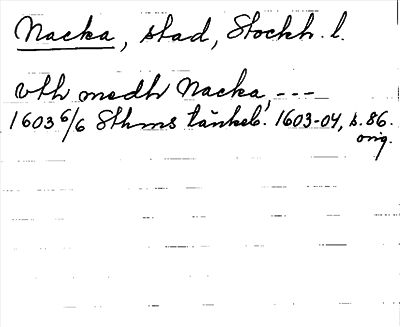 Nacka, stad, Stockh. l.
vth medh Nacka, ---
1603 6/6 Sthms tänkeb. 1603-04, s. 86.
orig.